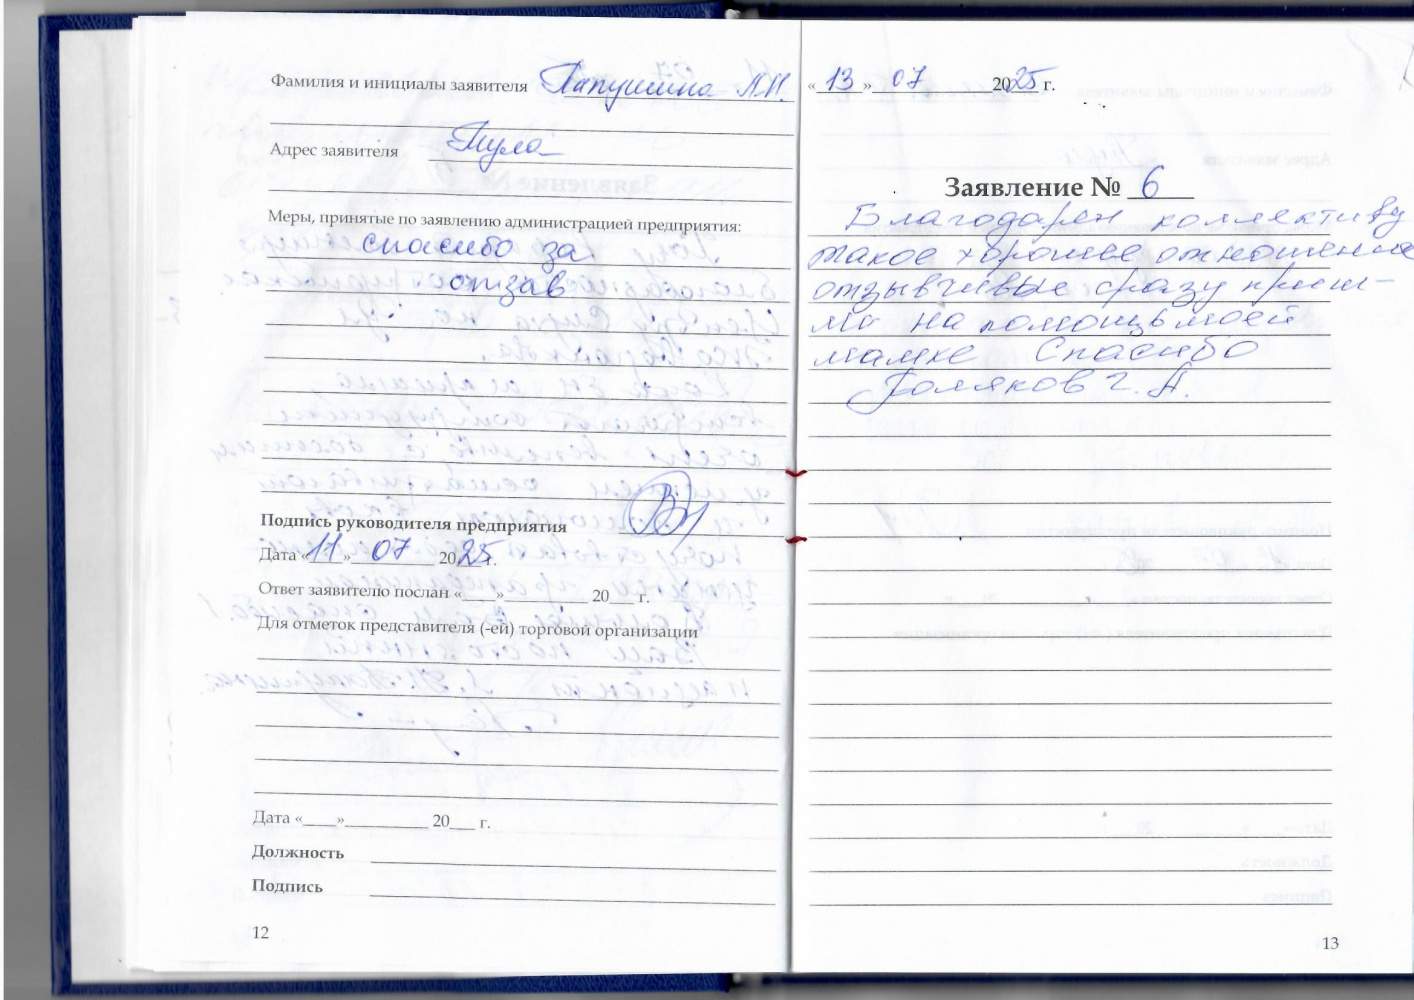 Фамилия и инициалы заявителя Папушина Л.И.
Адрес заявителя Тула
Меры, принятые по заявлению администрацией предприятия:
спасибо за
отзав
Подпись руководителя предприятия
Дата «11» 07 2025 г.
Ответ заявителю послан «____»__________ 20___ г.
Для отметок представителя (-ей) торговой организации
Дата «____»__________ 20___ г.
Должность
Подпись
12
«13» 07 2025 г.
Заявление № 6
Благодарен коллективу
такое хорошее отношение
отзывчивые сразу приш-
ли на помощь моей
мамке Спасибо
Поляков Г. А.
13